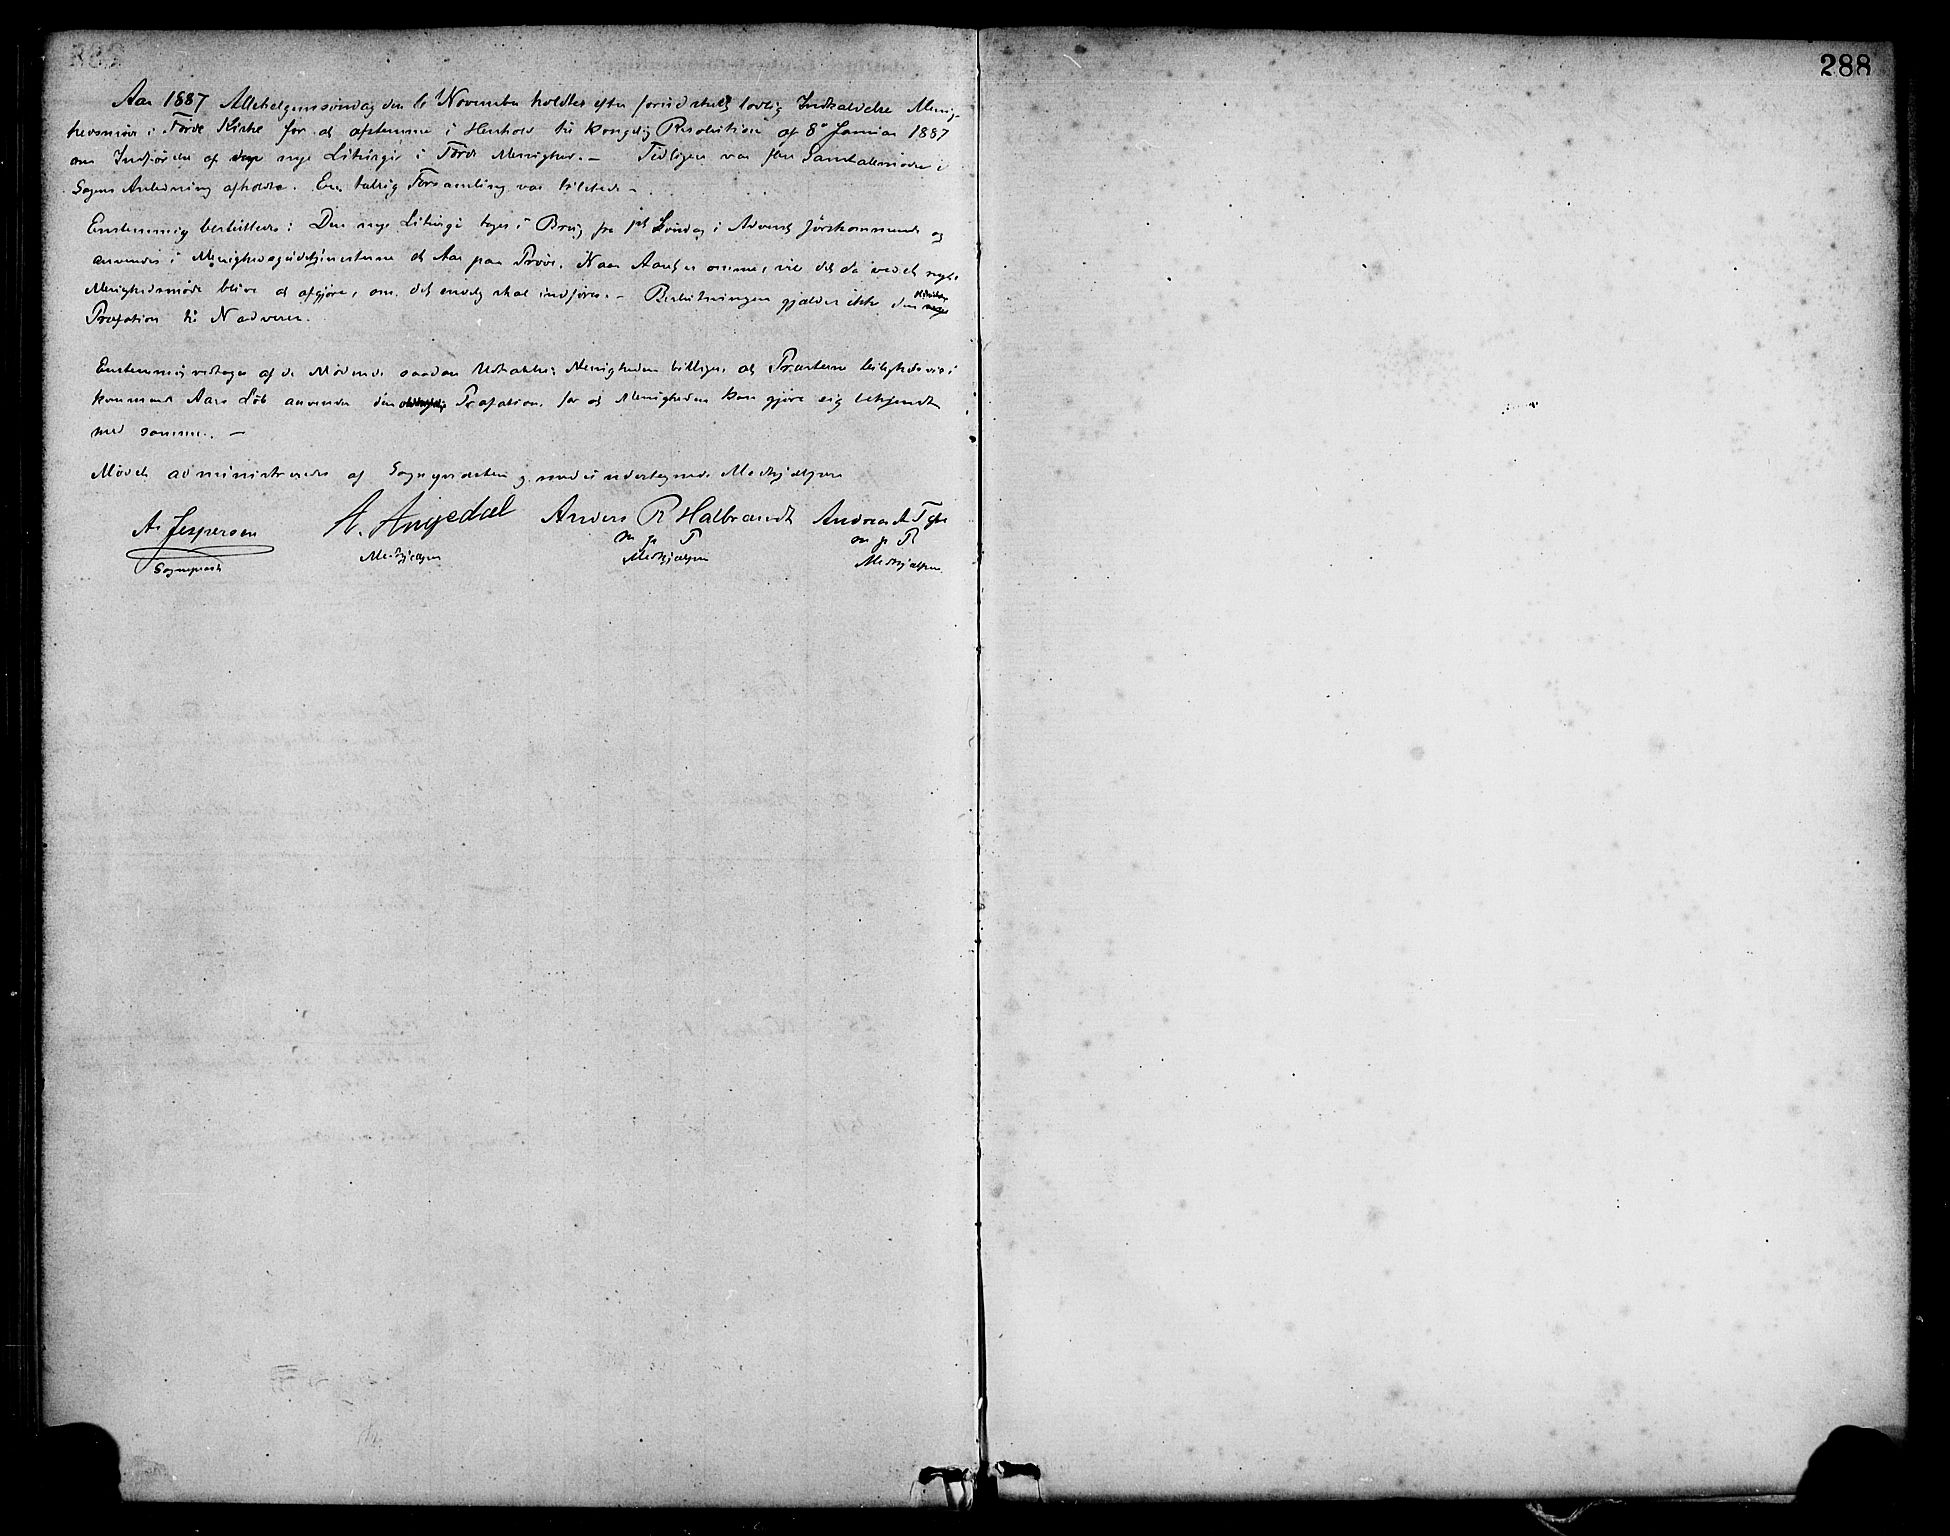 288
Aar 1887 Allehelgenssøndag den 6 November holdtes efter forud skeet lovlig Indkaldelse Menig-
hedsmøde i Førde Kirke for at afstemme i Henhold til kongelig Resolution af 8de Januar 1887
om Indførelse af nye Liturgie i Førde Menighed. – Tidligere var flere Samtalemøder i
Sagens Anledning afholdte. En talrig Forsamling var tilstede –
Enstemmig besluttedes: Den nye Liturgi tages i Brug fra 1ste Søndag i Advent førstkommende og
anvendes i Menighedsgudstjenesterne et Aar paa Prøve. Naar Aaret er omme, vil det da ved et nyt
Menighedsmøde blive at afgjøre, om det endelig skal indføres. – Beslutningen gjælder ikke den
Præfation til Nadveren.
Enstemmig vedtoges af de Mødende saadan Udtalelse: Menigheden billiger, at Præsterne leilighedsvis i
kommende Aars Løb anvender den Præfation, for at Menigheden kan gjøre sig bekjendt
med samme. –
Mødet administreredes af Sognepræsten og medundertegnede Medhjælpere
A. Jespersen H. Angedal Anders R Halbrændt Andreas A
m p P m p P
Sognepræst Medhjælper Medhjælper Medhjælper